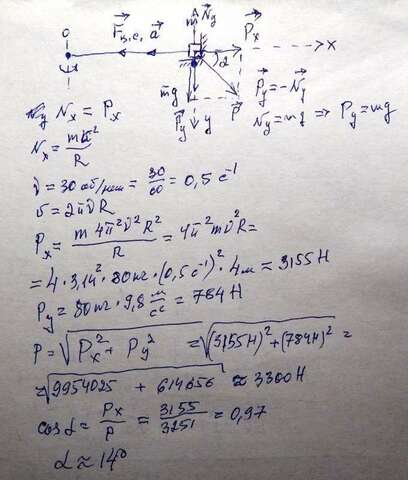 O F⃗ц.с. a⃗ m N⃗y P⃗x x
α
m⃗g P⃗y y P⃗ P⃗y = -N⃗y
Ny = mg ⇒ Py = mg
Nx = Px
Nx = mv²/R
ν = 30 об/мин = 30/60 = 0,5 c⁻¹
v = 2πνR
Px = m 4π²ν²R²/R = 4π²mν²R =
= 4 · 3,14² · 80 кг · (0,5 c⁻¹)² · 4м ≈ 3155 Н
Py = 80 кг · 9,8 м/c² = 784 Н
P = √(Px² + Py²) = √((3155 Н)² + (784 Н)²) =
= √(9954025 + 614656) ≈ 3300 Н
cos α = Px/P = 3155/3251 = 0,97
α ≈ 14°